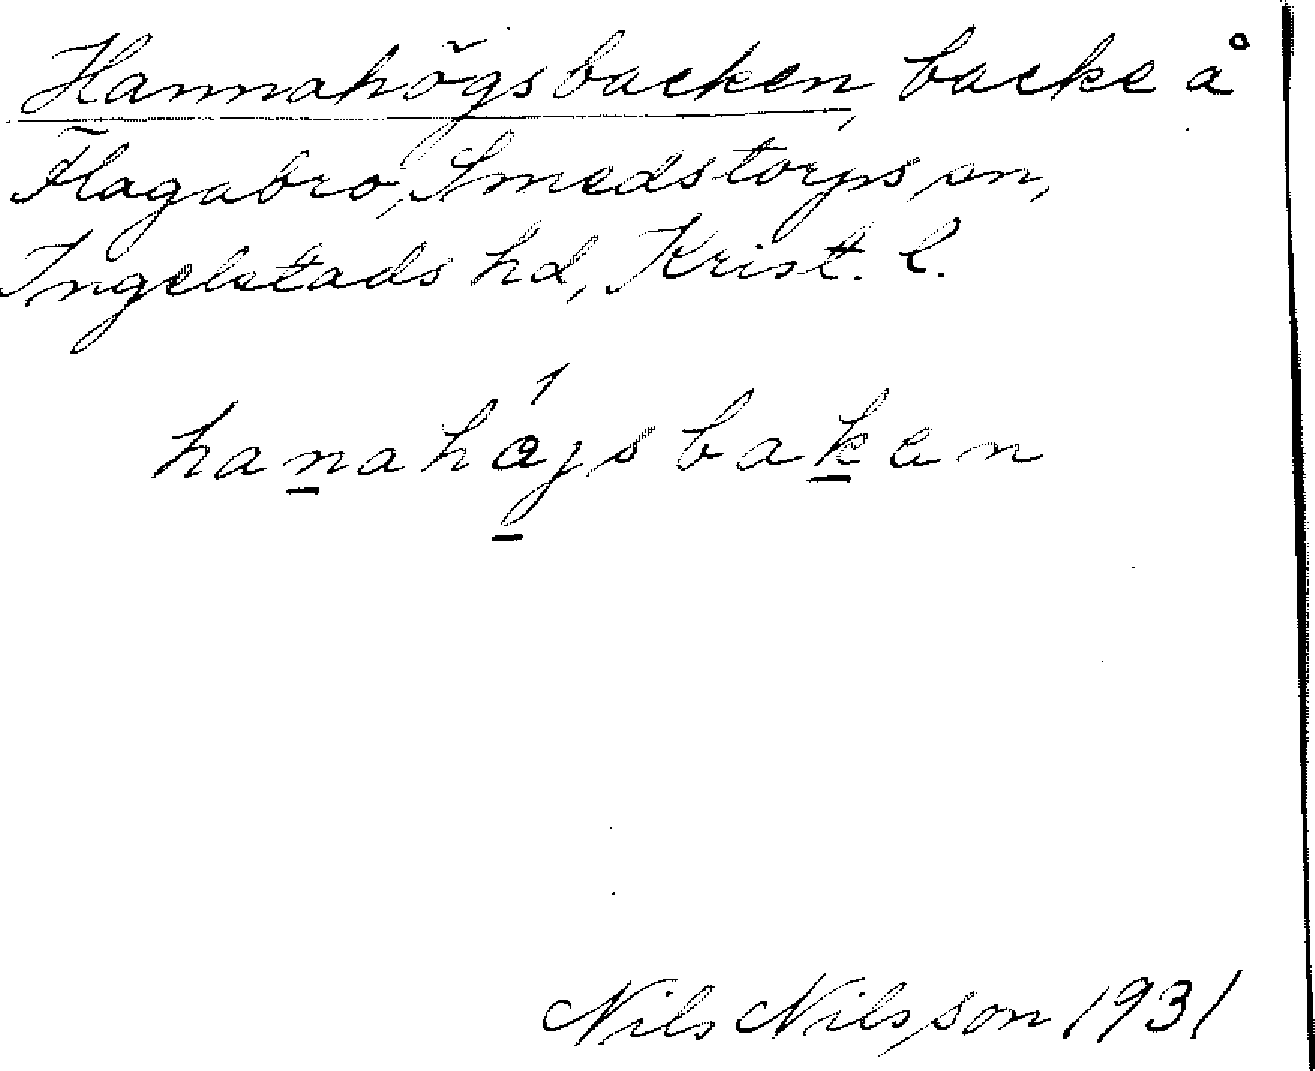 Hannahögsbacken, backe å
Flagabro, Smedstorps sn,
Ingelstads hd, Krist. l.
hanahájsbaken
Nils Nilsson 1931